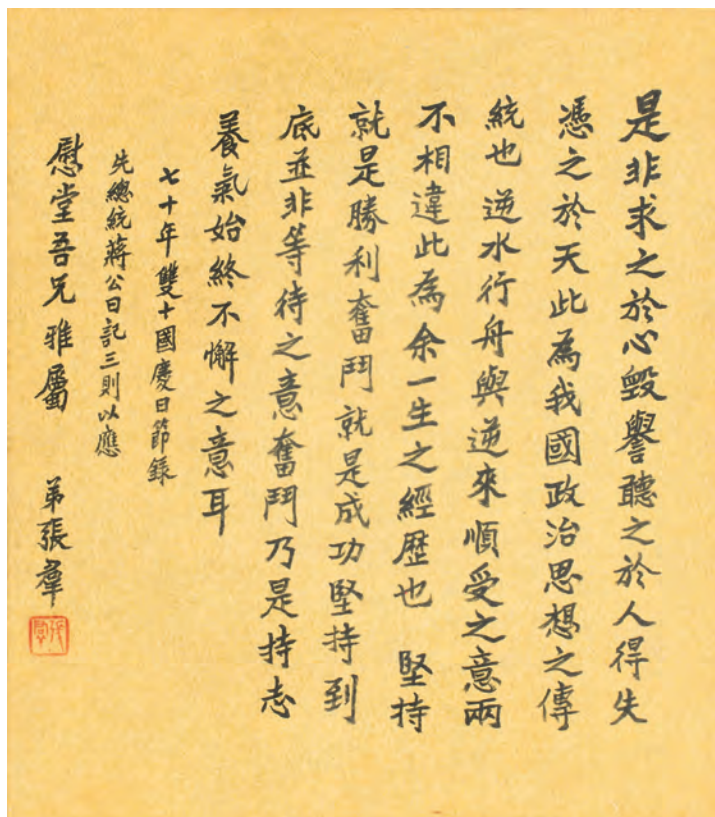 是非求之於心毀譽聽之於人得失
憑之於天此為我國政治思想之傳
統也　逆水行舟與逆來順受之意兩
不相違此為余一生之經歷也　堅持
就是勝利奮鬥就是成功堅持到
底並非等待之意奮鬥乃是持志
養氣始終不懈之意耳
七十年雙十國慶日節錄
先總統蔣公日記三則以應
慰堂吾兄雅屬　弟張羣
張羣